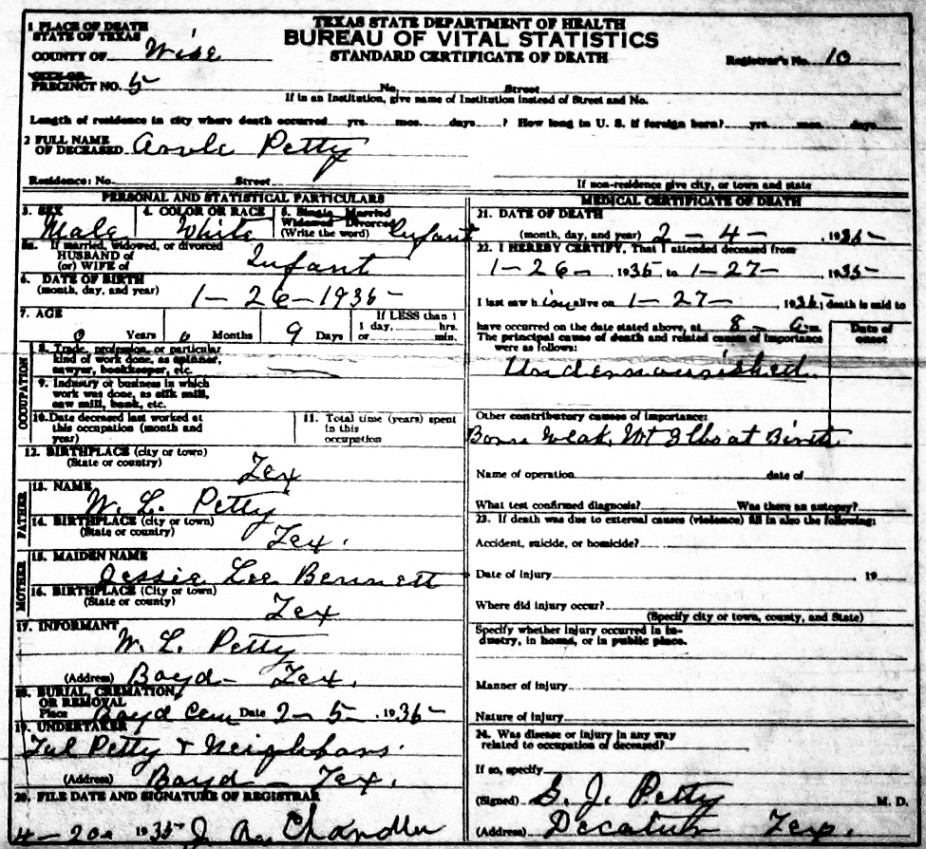 TEXAS STATE DEPARTMENT OF HEALTH
BUREAU OF VITAL STATISTICS
STANDARD CERTIFICATE OF DEATH
1 PLACE OF DEATH
STATE OF TEXAS
COUNTY OF Wise
Registrar's No. 10
CITY OR
PRECINCT NO. 5 No. Street
If in an Institution, give name of Institution instead of Street and No.
Length of residence in city where death occurred yrs. mos. days ? How long in U. S. if foreign born? yrs. mos. days
2 FULL NAME
OF DECEASED Petty
Residence: No. Street
If non-residence give city, or town and state
PERSONAL AND STATISTICAL PARTICULARS
3. SEX Male
4. COLOR OR RACE White
5. Single Married
Widowed Divorced
(Write the word) Infant
5a. If married, widowed, or divorced
HUSBAND of
(or) WIFE of Infant
6. DATE OF BIRTH
(month, day, and year) 1-26-1935
7. AGE
0 Years 0 Months 9 Days
If LESS than 1
1 day, hrs.
or min.
OCCUPATION
8. Trade, profession, or particular
kind of work done, as spinner,
sawyer, bookkeeper, etc.
9. Industry or business in which
work was done, as silk mill,
saw mill, bank, etc.
10. Date deceased last worked at
this occupation (month and
year)
11. Total time (years) spent
in this
occupation
12. BIRTHPLACE (city or town)
(State or country) Tex
FATHER
13. NAME
W. L. Petty
14. BIRTHPLACE (city or town)
(State or country) Tex.
MOTHER
15. MAIDEN NAME
Jessie Lee Bennett
16. BIRTHPLACE (City or town)
(State or county) Tex
17. INFORMANT
W. L. Petty
(Address) Boyd Tex.
18. BURIAL, CREMATION,
OR REMOVAL
Place Boyd Cem Date 2-5-1935
19. UNDERTAKER
Petty & Neighbors.
(Address) Boyd Tex.
20. FILE DATE AND SIGNATURE OF REGISTRAR
4-20 1935 J. A. Chandler
MEDICAL CERTIFICATE OF DEATH
21. DATE OF DEATH
(month, day, and year) 2-4-1935
22. I HEREBY CERTIFY, That I attended deceased from
1-26-1935 to 1-27-1935
I last saw h im alive on 1-27-1935; death is said to
have occurred on the date stated above, at 8 a m.
The principal cause of death and related causes of importance
were as follows:
Date of
onset
Undernourished
Other contributory causes of importance:
Born Weak, Wt 3 lbs at Birth
Name of operation date of
What test confirmed diagnosis? Was there an autopsy?
23. If death was due to external causes (violence) fill in also the following:
Accident, suicide, or homicide?
Date of injury 19
Where did injury occur?
(Specify city or town, county, and State)
Specify whether injury occurred in in-
dustry, in home, or in public place.
Manner of injury
Nature of injury
24. Was disease or injury in any way
related to occupation of deceased?
If so, specify
(Signed) S. J. Petty M. D.
(Address) Decatur Tex.